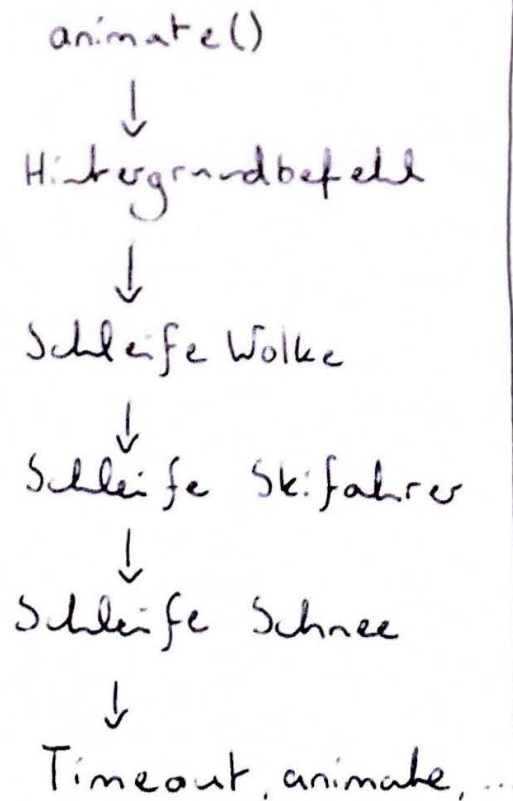 animate()
↓
Hintergrundbefehl
↓
Schleife Wolke
↓
Schleife Skifahrer
↓
Schleife Schnee
↓
Timeout, animate, ...